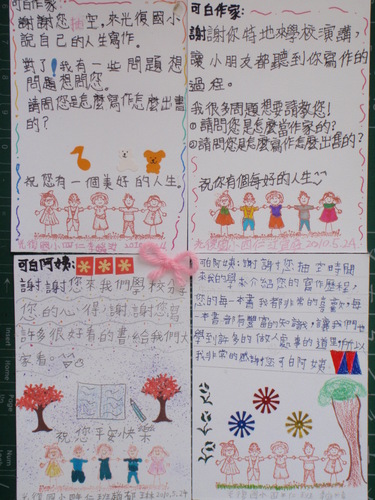 可白作家:
謝謝您抽空,來光復國小
說自己的人生寫作。
對了!我有一些問題想
問題想問您。
請問您是怎麼寫作怎麼出書
的?
祝您有一個美好的人生。
可白作家:
謝謝你特地來學校演講,
讓小朋友都聽到你寫作的
過程。
我很多問題想要請教您!
①請問您是怎麼當作家的?
②請問您是怎麼寫作怎麼出書的?
祝你有個每好的人生
光復國小四仁
2010.5.24.
可白阿姨:
謝謝您來我們學校分
享您的心得,謝謝您寫
許多很好看的書給我們大
家看。
祝您平安快樂
可白阿姨:謝謝您抽空時間
來我的學校介紹您的寫作歷程,
您的每一本書我都非常的喜歡,每
一本書都有豐富的知識,讓我們
學到許多的做人處事的道理,所以
我非常的感謝您可白阿姨
Insert
Home
Page
Up
Num